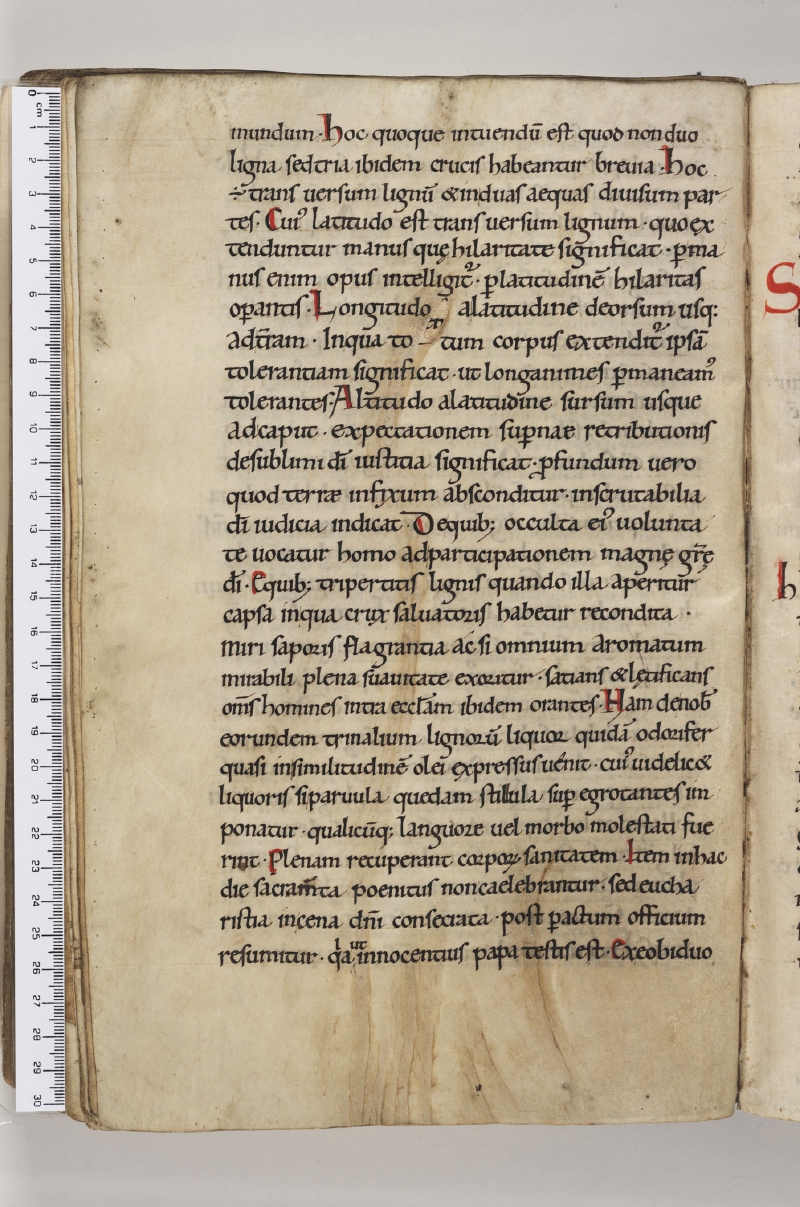 mundum · hoc quoque intuendū est quod non duo
ligna sed tria ibidem crucis habeantur brevia · hoc
÷ trans versum lignū & in duas aequas divisum par
tes · Cui᾽ latitudo est trans versum lignum · quo ex
tenduntur manus quę hilaritate significat · p̱ ma
nus enim opus intelligit᷒ · p̱ latitudinē hilaritas
op̱antis · Longitudo a latitudine deorsum usq:
ad tr̄am · In qua to tum corpus extendit᷒ ipsā
tolerantiam significat · ut longanimes p̱maneam᾽
tolerantes · Altitudo a latitudine sursum usque
ad caput · expectationem sup̱nae retributionis
de sublimi dī iustitia significat · p̱fundum uero
quod terræ infixum absconditur · inscrutabilia
dī iudicia indicat · De quib; occulta ei᾽ uolunta
te uocatur homo ad participationem magnę gr̄ę
dī · E quib; tripertitis lignis quando illa aperitur
capsa in qua crux saluatoris habetur recondita ·
miri saporis flagrantia ac si omnium aromatum
mirabili plena suauitate exoritur · satians & lętificans
om̄s homines intra eccl̄am ibidem orantes · Nam de nob̄
eorundem trinalium lignorū liquor quidā odorifer
quasi in similitudinē olei expressus uenit · cui᾽ uidelic&
liquoris si paruula quedam stillula sup̱ egrotantes im
ponatur · qualicūq; languore uel morbo molestati fue
rint · Plenam recuperant corpoꝝ sanitatem · Item in hac
die sacram̄ta poenitus non caelebrantur · sed eucha
ristia in cena dn̄i consecrata · post p̱actum officium
resumitur · q̄a ut innocentius papa testis est · Ex eo biduo